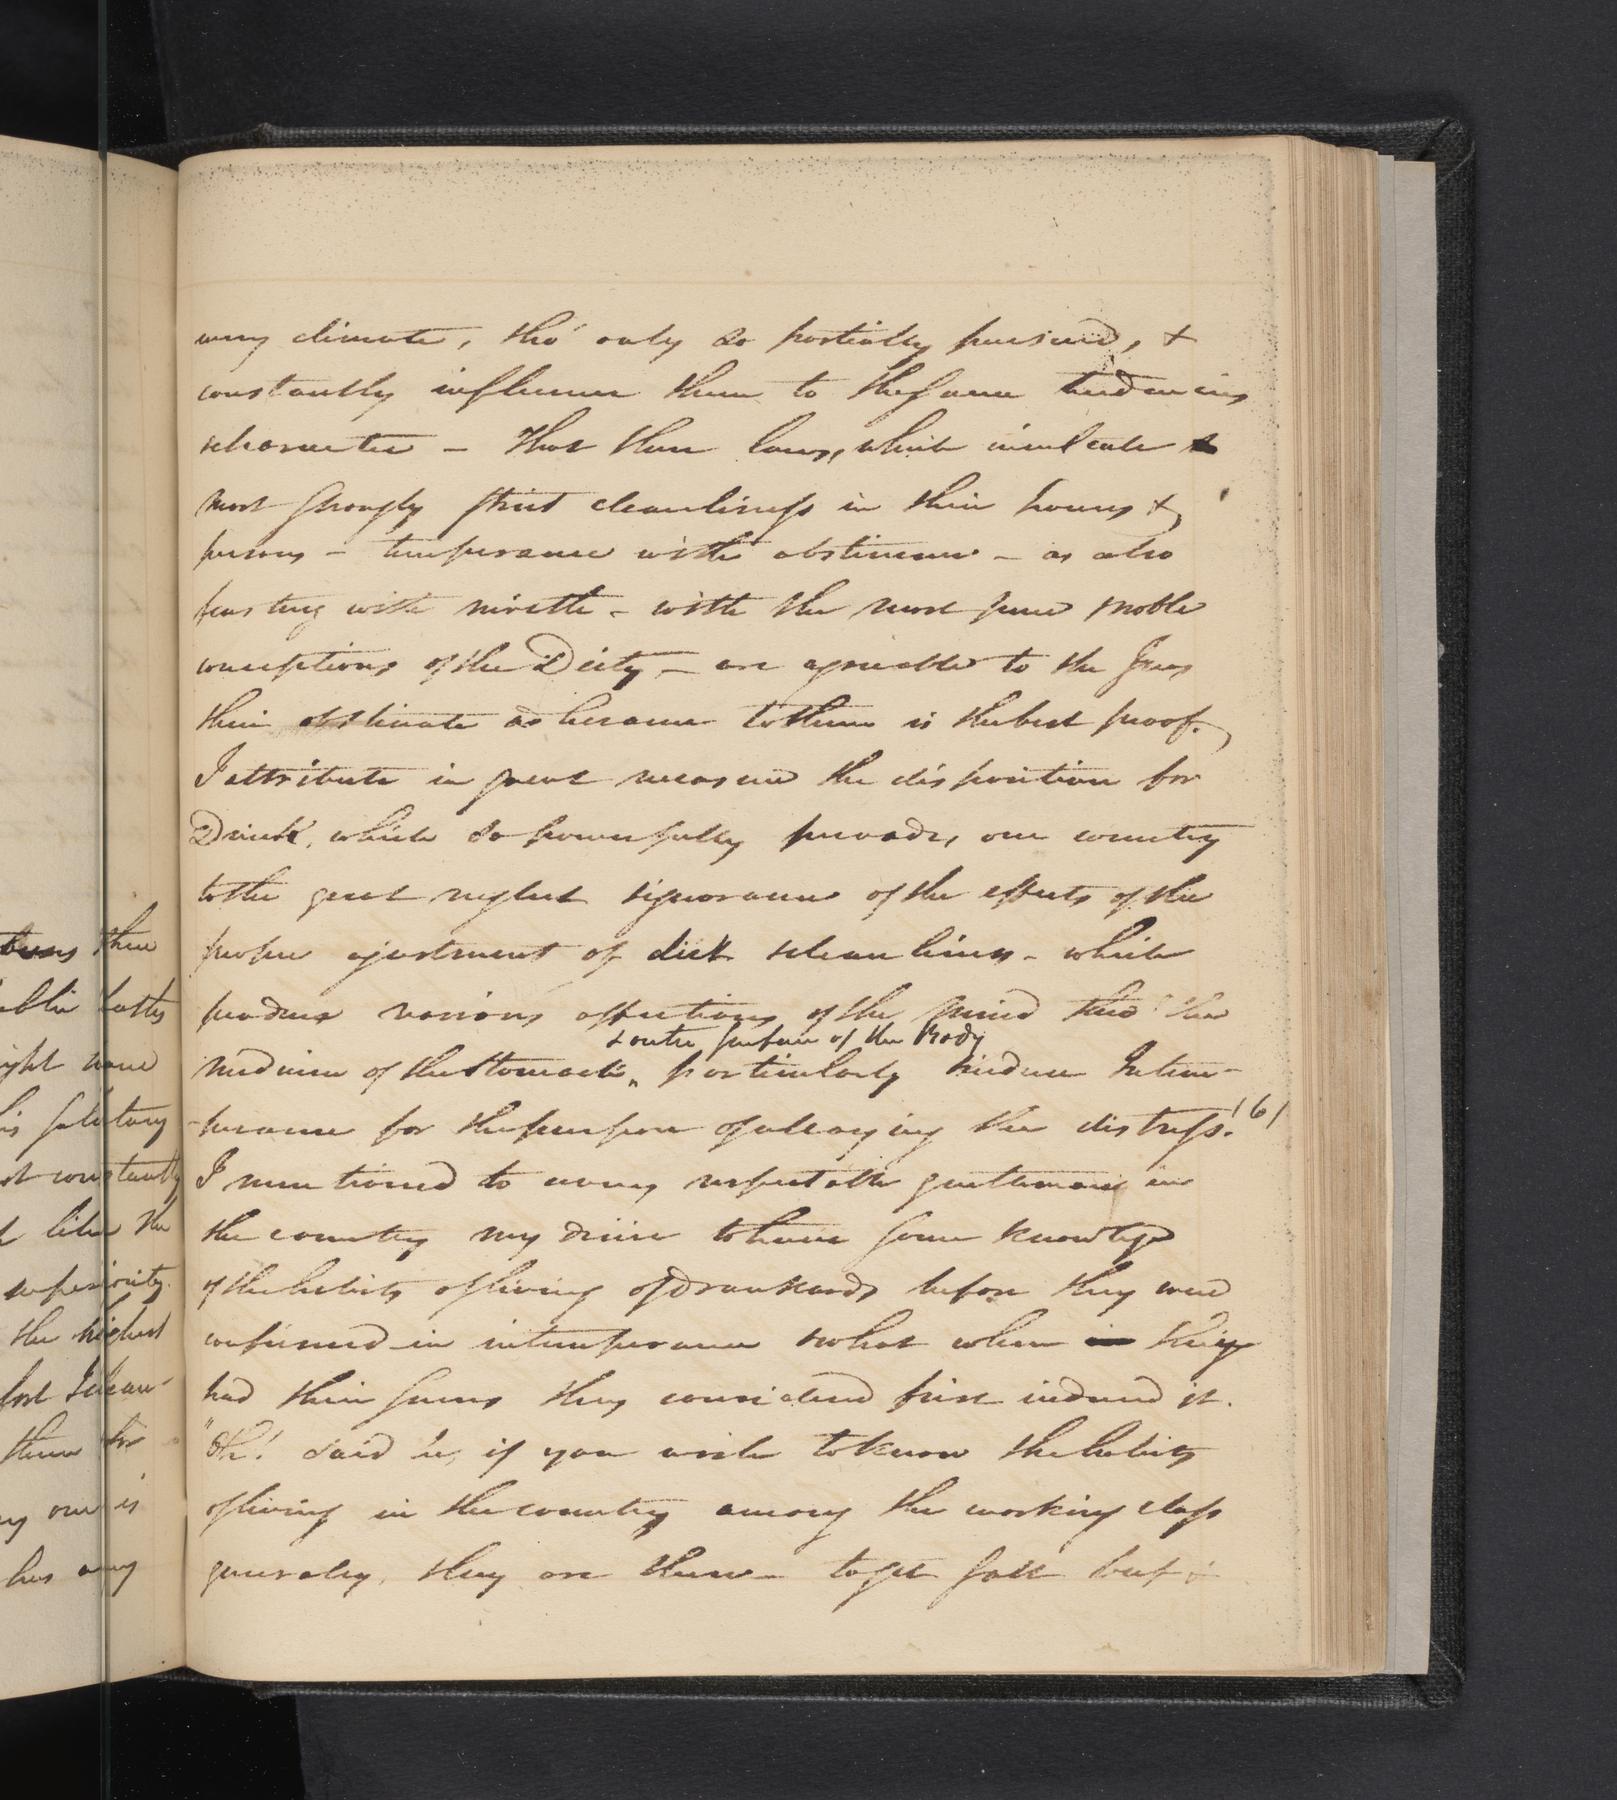 every climate, tho' only so partially pursued, &
constantly influence them to the same tendencies
&character — That these laws, which inculcate
most strongly strict cleanliness in their houses &
persons — temperance with abstinence — as also
feasting with mirth — with the most pure & noble
conceptions of the Deity — are agreeable to the Jews
their obstinate adherance to them is the best proof.
I attribute in great measure the disposition for
Drink, which so powerfully pervades, our country
to the great neglect & ignorance of the effects of the
proper ajustment of diet & cleanliness — which
produce various affections of the mind thro' the
& outer surface of the Body
medium of the stomach „ particularly & induce Intem-
-perance for the purpose of allaying the distress. (6)
I mentioned to a very respectable gentleman in
the country my desire to have some knowledge
of the habits of living of drunkards before they were
confirmed in intemperance & what when they
had their senses they considered first induced it.
"Oh! said he, if you wish to know the habits
of living in the country among the working class
generally, they are these — to get salt beef &
them
public baths
might have
his salutary
not constantly
like the
superiority.
the highest
lost
them for
any one is
has any